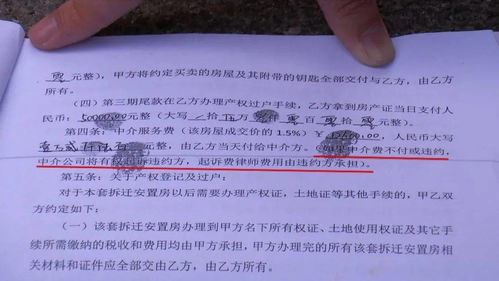 零 元整），甲方将约定买卖的房屋及其附带的钥匙全部交付与乙方，由乙方
所有。
（四）第三期尾款在乙方办理产权过户手续，乙方拿到房产证当日支付人
民币：50000.00 元整（大写 拾 伍 万 仟 零 百 零 拾 零 元整）。
第四条：中介服务费（该房屋成交价的 1.5%）￥ 12600.00，人民币大写
壹万贰仟陆佰 元整，由乙方当天付给中介方。（如果中介费不付或违约，
中介公司将有权起诉违约方，起诉费律师费用由违约方承担）。
第五条：关于产权登记及过户：
对于本套拆迁安置房以后需要办理产权证，土地证等其他手续的，甲乙双
方约定如下：
（一）该套拆迁安置房办理到甲方名下所有权证、土地使用权证及其它手
续所需缴纳的税收和费用均由甲方承担，甲方办理完的所有该套拆迁安置房相
关材料和证件应全部交由乙方，由乙方所有。